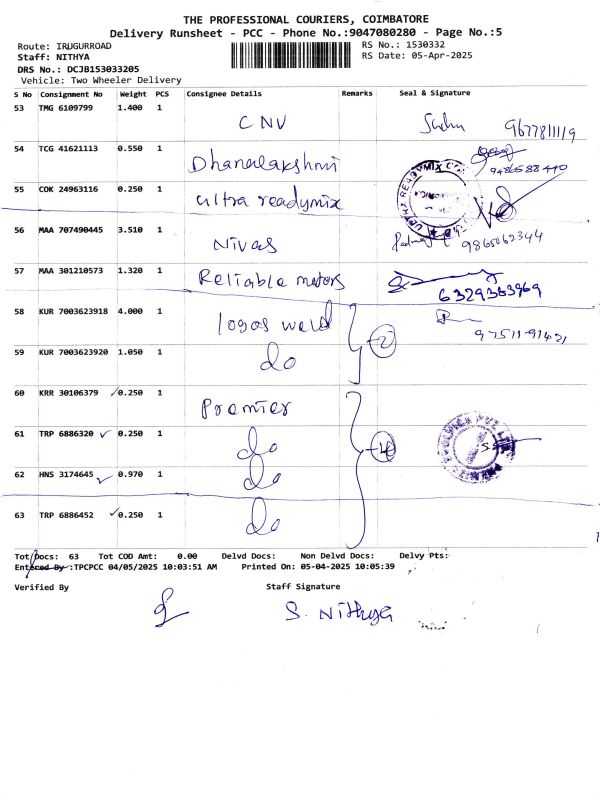 THE PROFESSIONAL COURIERS, COIMBATORE
Delivery Runsheet - PCC - Phone No.:9047080280 - Page No.:5
Route: IRUGURROAD RS No.: 1530332
Staff: NITHYA RS Date: 05-Apr-2025
DRS No.: DCJB153033205
Vehicle: Two Wheeler Delivery
S No Consignment No Weight PCS Consignee Details Remarks Seal & Signature
53 TMG 6109799 1.400 1 CNV 9677811119
54 TCG 41621113 0.550 1 Dhanalakshmi 9486588440
55 COK 24963116 0.250 1 ultra readymix
56 MAA 707490445 3.510 1 Nivas 9865062344
57 MAA 301210573 1.320 1 Reliable motors 6329383969
58 KUR 7003623918 4.000 1 logos weld 2 97511-91421
59 KUR 7003623920 1.050 1 do
60 KRR 30106379 0.250 1 Premier
61 TRP 6886320 0.250 1 do 4
62 HNS 3174645 0.970 1 do
63 TRP 6886452 0.250 1 do
Tot Docs: 63 Tot COD Amt: 0.00 Delvd Docs: Non Delvd Docs: Delvy Pts:
Entered By :TPCPCC 04/05/2025 10:03:51 AM Printed On: 05-04-2025 10:05:39
Verified By Staff Signature
S. Nithya